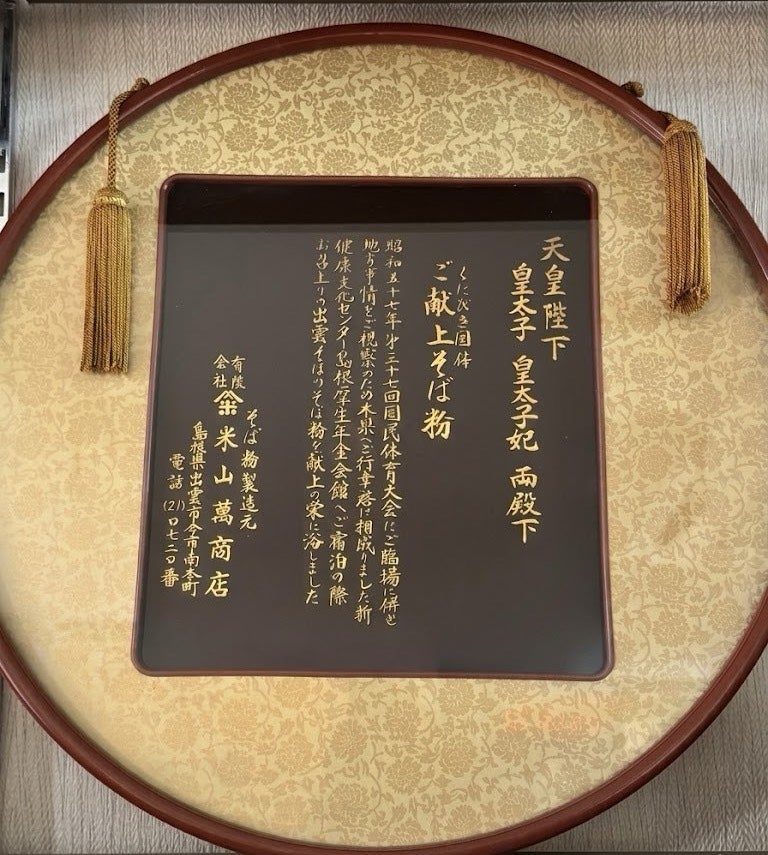 天皇陛下
皇太子 皇太子妃 両殿下
くにびき国体
ご献上そば粉
昭和五十七年第三十七回国民体育大会にご臨場に併せ
地方事情をご視察のため本県へご行幸啓に相成りました折
健康文化センター島根厚生年金会館へご宿泊の際
お召上りの出雲そばのそば粉を献上の栄に浴しました
そば粉製造元
有限会社 米山萬商店
島根県出雲市今市南本町
電話(21)〇七二〇番